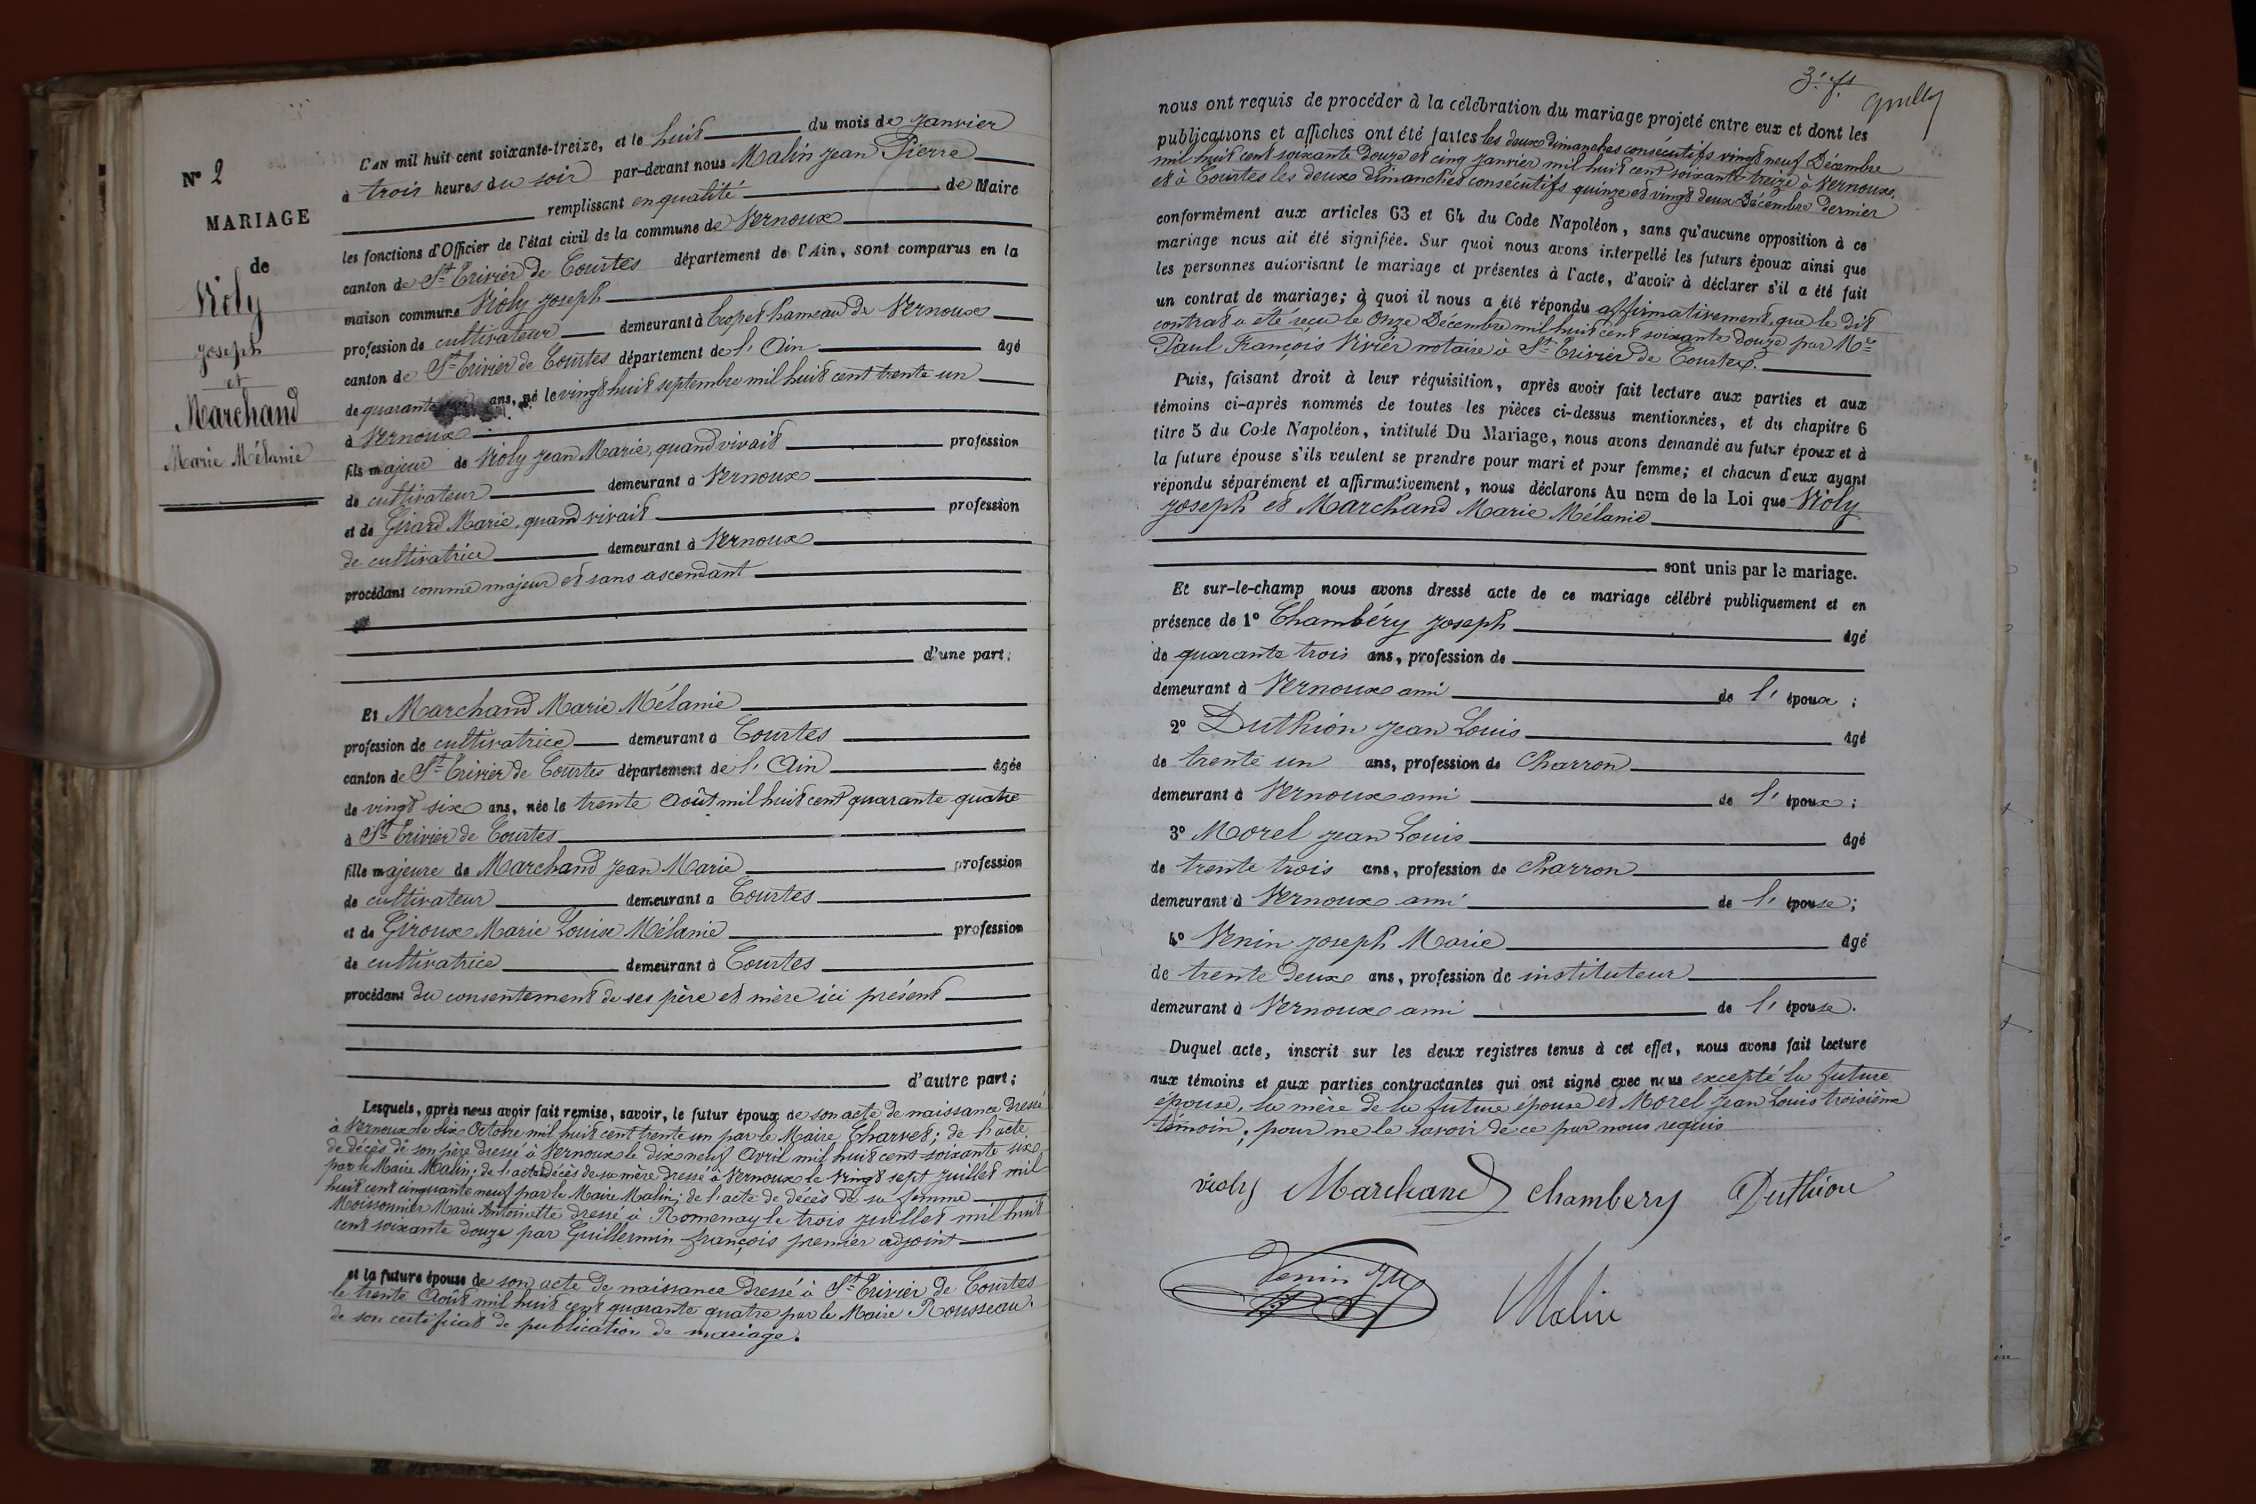 N° 2
MARIAGE
de
Violy
Joseph
et
Marchand
Marie Mélanie
L'AN mil huit cent soixante-treize, et le huit du mois de Janvier
à trois heures du soir par-devant nous Malin Jean Pierre
remplissant en qualité de Maire
les fonctions d'Officier de l'état civil de la commune de Vernoux
canton de St Trivier de Courtes département de l'Ain, sont comparus en la
maison commune Violy Joseph
profession de cultivateur demeurant à hameau de Vernoux
canton de St Trivier de Courtes département de l'Ain âgé
de quarante ans, né le vingt huit septembre mil huit cent trente un
à Vernoux
fils majeur de Violy Jean Marie, quand vivait profession
de cultivateur demeurant à Vernoux
et de Girard Marie, quand vivait profession
de cultivatrice demeurant à Vernoux
procédant comme majeur et sans ascendant
d'une part;
Et Marchand Marie Mélanie
profession de cultivatrice demeurant à Courtes
canton de St Trivier de Courtes département de l'Ain âgée
de vingt six ans, née le trente Août mil huit cent quarante quatre
à St Trivier de Courtes
fille majeure de Marchand Jean Marie profession
de cultivateur demeurant à Courtes
et de Giroux Marie Louise Mélanie profession
de cultivatrice demeurant à Courtes
procédant du consentement de ses père et mère ici présent
d'autre part;
Lesquels, après nous avoir fait remise, savoir, le futur époux de son acte de naissance dressé
à Vernoux le six Octobre mil huit cent trente un par le Maire Charvet; de l'acte
de décès de son père dressé à Vernoux le dix neuf Avril mil huit cent soixante six
par le Maire Malin; de l'acte décès de sa mère dressé à Vernoux le vingt sept juillet mil
huit cent cinquante neuf par le Maire Malin; de l'acte de décès de sa femme
Moissonnier Marie Antoinette dressé à Romenay le trois juillet mil huit
cent soixante douze par Guillermin françois premier adjoint
et la future épouse de son acte de naissance dressé à St Trivier de Courtes
le trente Août mil huit cent quarante quatre par le Maire Rousseau.
de son certificat de publication de mariage.
3e ft
nous ont requis de procéder à la célébration du mariage projeté entre eux et dont les
publications et affiches ont été faites les deux dimanches consécutifs vingt neuf Décembre
mil huit cent soixante douze et cinq janvier mil huit cent soixante treize à Vernoux,
et à Courtes les deux dimanches consécutifs quinze et vingt deux Décembre dernier
conformément aux articles 63 et 64 du Code Napoléon, sans qu'aucune opposition à ce
mariage nous ait été signifiée. Sur quoi nous avons interpellé les futurs époux ainsi que
les personnes autorisant le mariage et présentes à l'acte, d'avoir à déclarer s'il a été fait
un contrat de mariage; à quoi il nous a été répondu affirmativement, que le dit
contrat a été reçu le Onze Décembre mil huit cent soixante douze par Me
Paul François Vivier notaire à St Trivier de Courtes.
Puis, faisant droit à leur réquisition, après avoir fait lecture aux parties et aux
témoins ci-après nommés de toutes les pièces ci-dessus mentionnées, et du chapitre 6
titre 5 du Code Napoléon, intitulé Du Mariage, nous avons demandé au futur époux et à
la future épouse s'ils veulent se prendre pour mari et pour femme; et chacun d'eux ayant
répondu séparément et affirmativement, nous déclarons Au nom de la Loi que Violy
Joseph et Marchand Marie Mélanie
sont unis par le mariage.
Et sur-le-champ nous avons dressé acte de ce mariage célébré publiquement et en
présence de 1° Chambéry Joseph âgé
de quarante trois ans, profession de
demeurant à Vernoux ami de l'époux;
2° Duthion Jean Louis âgé
de trente un ans, profession de Charron
demeurant à Vernoux ami de l'époux;
3° Morel Jean Louis âgé
de trente trois ans, profession de Charron
demeurant à Vernoux ami de l'épouse;
4° Venin Joseph Marie âgé
de trente deux ans, profession de instituteur
demeurant à Vernoux ami de l'épouse.
Duquel acte, inscrit sur les deux registres tenus à cet effet, nous avons fait lecture
aux témoins et aux parties contractantes qui ont signé avec nous excepté la future
épouse, la mère de la future épouse et Morel Jean Louis troisième
témoin, pour ne le savoir de ce par nous requis
violy Marchand chambery Duthion
Venin JM Malin